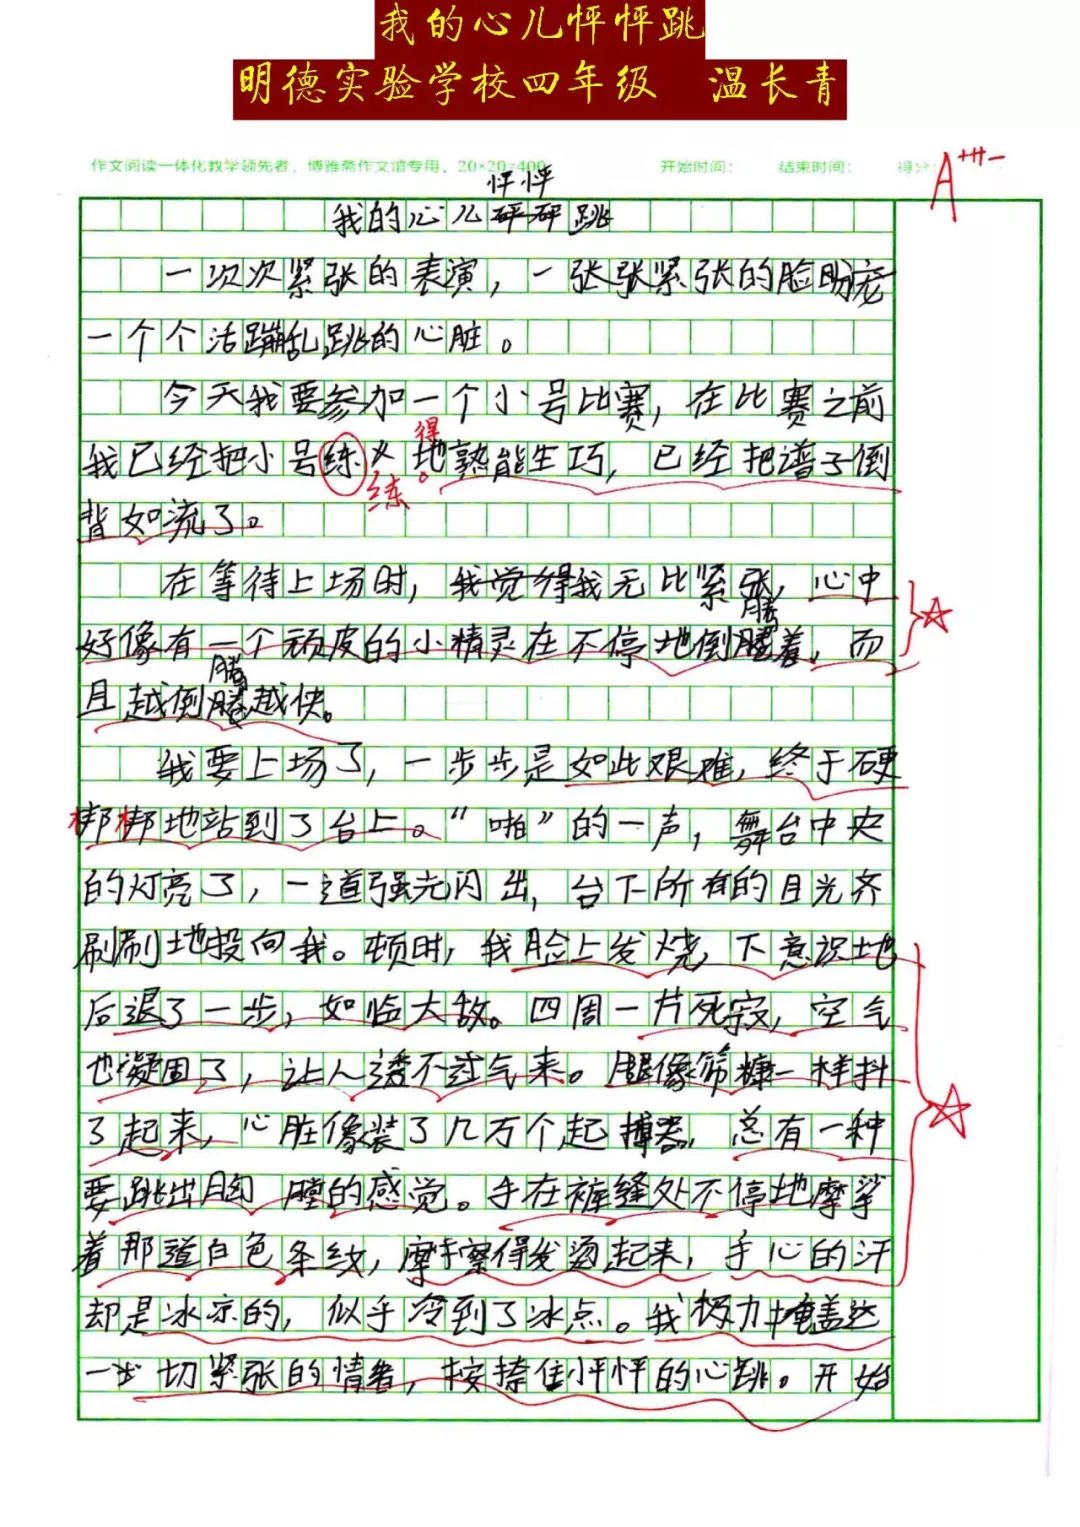 我的心儿怦怦跳
明德实验学校四年级 温长青
作文阅读一体化教学领先者，博雅斋作文馆专用，20×20=400 开始时间： 结束时间： 得分：
A+++-
怦怦
我的心儿砰砰跳
一次次紧张的表演，一张张紧张的脸
一个个活蹦乱跳的心脏。
今天我要参加一个小号比赛，在比赛之前
得
我已经把小号练 地熟能生巧，已经把谱子倒
练
背如流了。
在等待上场时，我觉得我无比紧张，心中
腾
好像有一个顽皮的小精灵在不停地倒腾着，而
腾
且越倒腾越快。
我要上场了，一步步是如此艰难，终于硬
梆梆地站到了台上。“啪”的一声，舞台中央
的灯亮了，一道强光闪出，台下所有的目光齐
刷刷地投向我。顿时，我脸上发烧，下意识地
后退了一步，如临大敌。四周一片死寂，空气
也凝固了，让人透不过气来。腿像筛糠一样抖
了起来，心脏像装了几万个起搏器，总有一种
要跳出胸膛的感觉。手在裤缝处不停地摩挲
着那道白色条线，摩擦得发烫起来，手心的汗
却是冰凉的，似乎冷到了冰点。我极力掩盖这
一切紧张的情绪，按捺住怦怦的心跳。开始